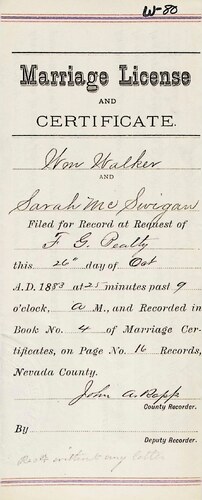 W-80
Marriage License
AND
CERTIFICATE.
Wm Walker
AND
Sarah McSwigan
Filed for Record at Request of
F. G. Pealty
this 26" day of Oct
A.D. 1883 at 25 minutes past 9
o'clock, A M., and Recorded in
Book No. 4 of Marriage Cer-
tificates, on Page No. 16 Records,
Nevada County.
John A. Rapp
County Recorder.
By
Deputy Recorder.